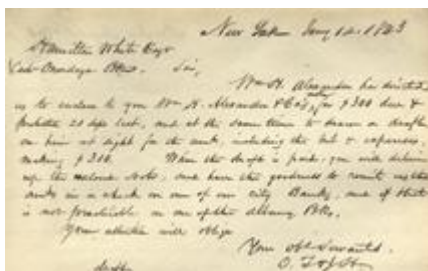 New York Jany 12. 1843
Hamilton White Esqr
Cash Onondaga Bk. Sir,
Wm H. Alexander has directed
us to enclose to you Wm H. Alexander & Co's for $300 due &
20 days last, and at the same time to draw a draft
on him at sight for the amt, including the int & expenses,
making $310. When the draft is paid, you will deliver
up the enclosed note, and have the goodness to remit us the
amt in a check on one of our city Banks, and if that
is not practicable on one of the Albany Bks,
Your attention will oblige
Your Obt Servants